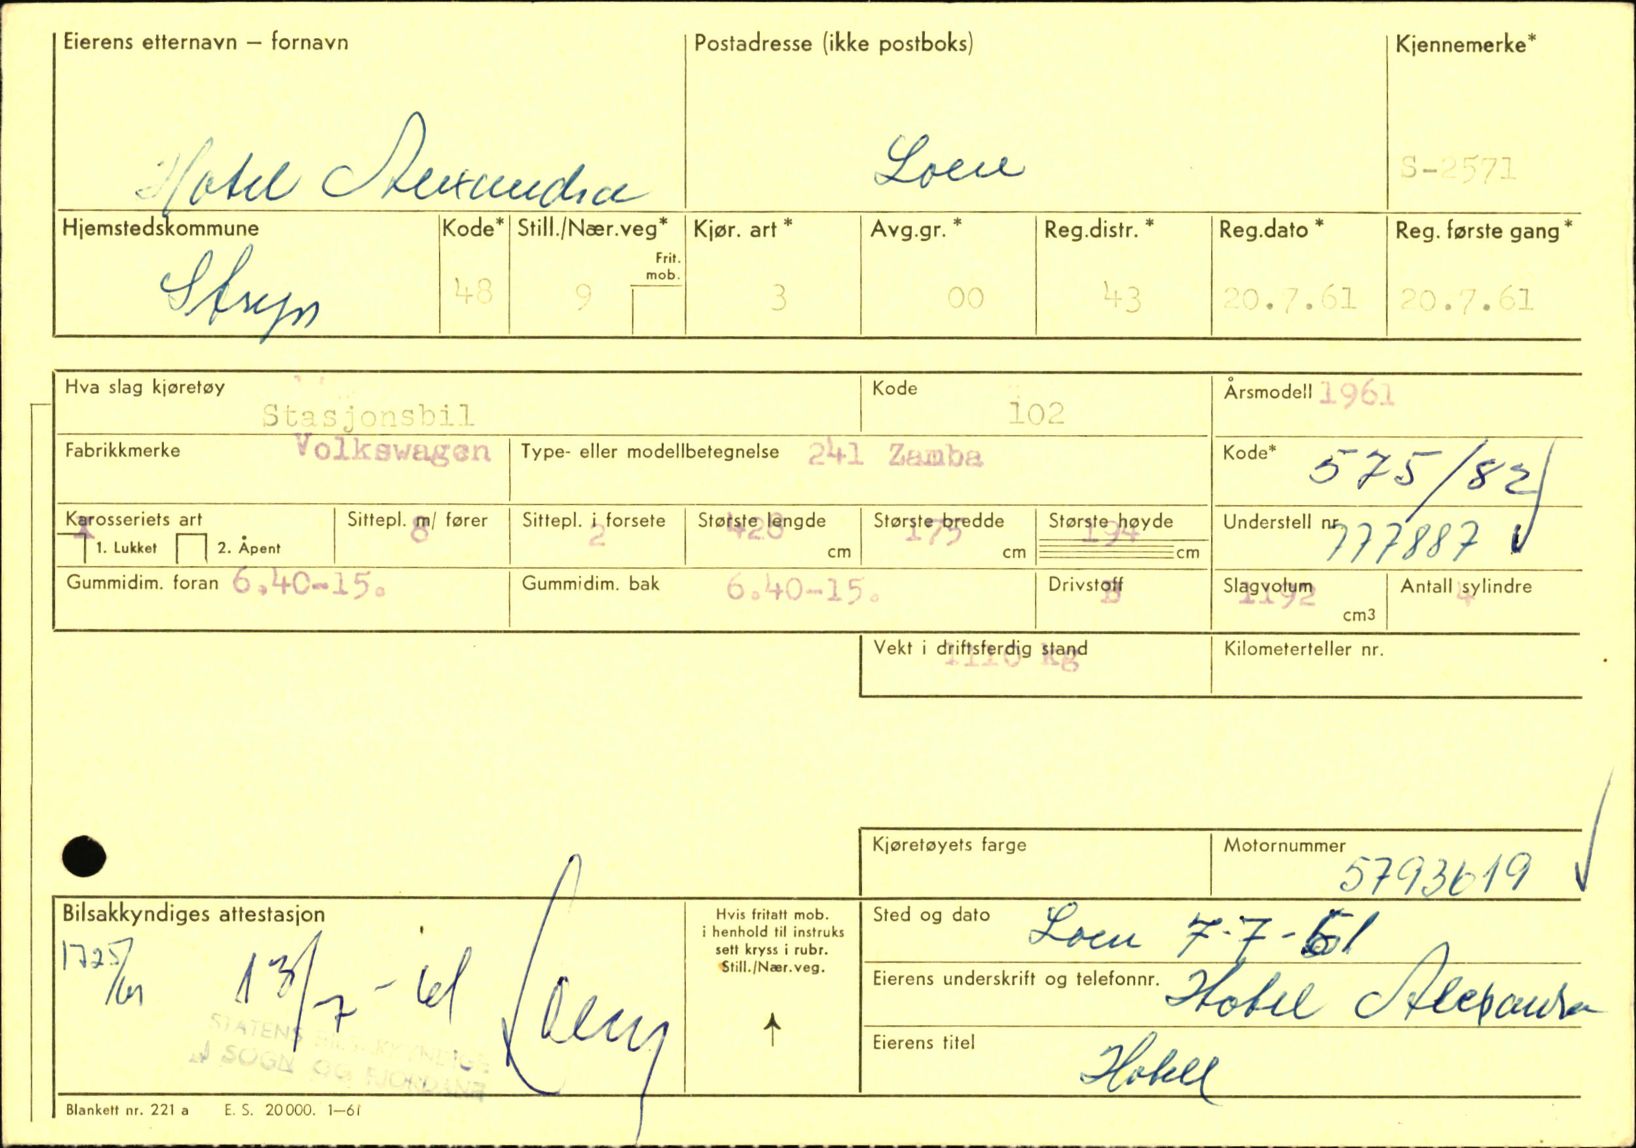 Eierens etternavn — fornavn Postadresse (ikke postboks) Kjennemerke*
Hotel Alexandra Loen S-2571
Hjemstedskommune Kode* Still./Nær.veg* Kjør. art* Avg.gr.* Reg.distr.* Reg.dato* Reg. første gang*
Frit. mob.
Stryn 48 9 3 00 43 20.7.61 20.7.61
Hva slag kjøretøy Kode Årsmodell 1961
Stasjonsbil 102
Fabrikkmerke Volkswagen Type- eller modellbetegnelse 241 Zamba Kode* 575/82
Karosseriets art Sittepl. m/ fører Sittepl. i forsete Største lengde Største bredde Største høyde Understell nr.
1 8 2 428 175 194 777887
1. Lukket 2. Åpent cm cm cm
Gummidim. foran 6.40-15. Gummidim. bak 6.40-15. Drivstoff B Slagvolum 1192 cm3 Antall sylindre 4
Vekt i driftsferdig stand 1110 kg Kilometerteller nr.
Kjøretøyets farge Motornummer
5793619
Bilsakkyndiges attestasjon Hvis fritatt mob. i henhold til instruks sett kryss i rubr. Still./Nær.veg. Sted og dato Loen 7-7-61
1725/61 13/7-61
Eierens underskrift og telefonnr. Hotel Alexandra
STATENS BILSAKKYNDIGE
I SOGN OG FJORDANE
Eierens titel Hotell
Blankett nr. 221 a E. S. 20000. 1—61